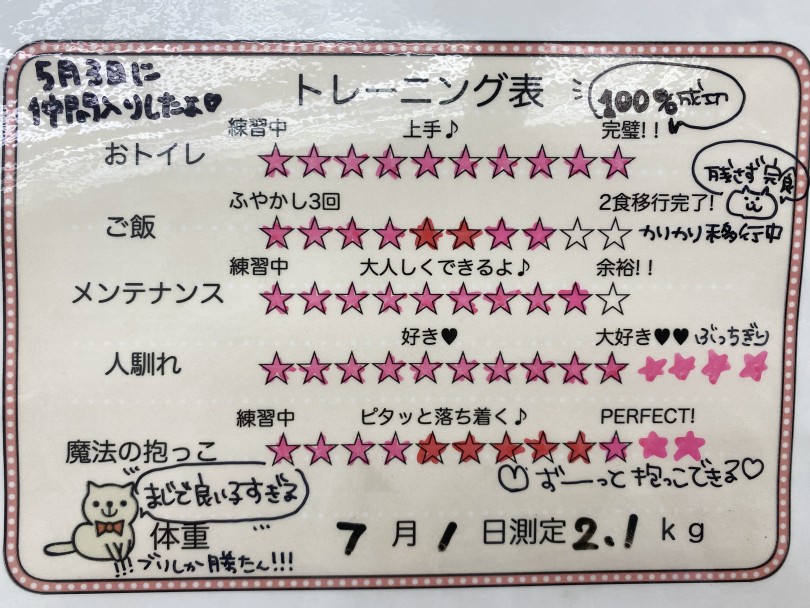 5月3日に
仲間入りしたよ♡
トレーニング表
100%成功
練習中 上手♪ 完璧!!
おトイレ ★★★★★★★★★★
残さず完食
ふやかし3回 2食移行完了!
ご飯 ★★★★★★★★☆☆ かりかり移行中
練習中 大人しくできるよ♪ 余裕!!
メンテナンス ★★★★★★★★★☆
好き♥ 大好き♥♥ ぶっちぎり
人馴れ ★★★★★★★★★★★★★★
練習中 ピタッと落ち着く♪ PERFECT!
魔法の抱っこ ★★★★★★★★★★★★
♡ ずーっと抱っこできる♡
まじで良い子すぎる
体重 7月1日測定2.1kg
!!!ブリしか勝たん!!!